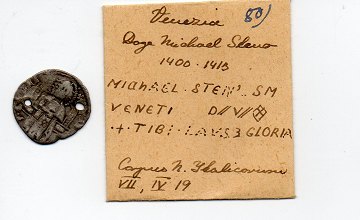 Venezia 80)
Doge Michael Steno
1400-1413
MICHAEL · STEN' · SM
VENETI D//V//
+ TIBI · LAVS 3 GLORIA
Corpus N. Italicorum
VII, IV 19